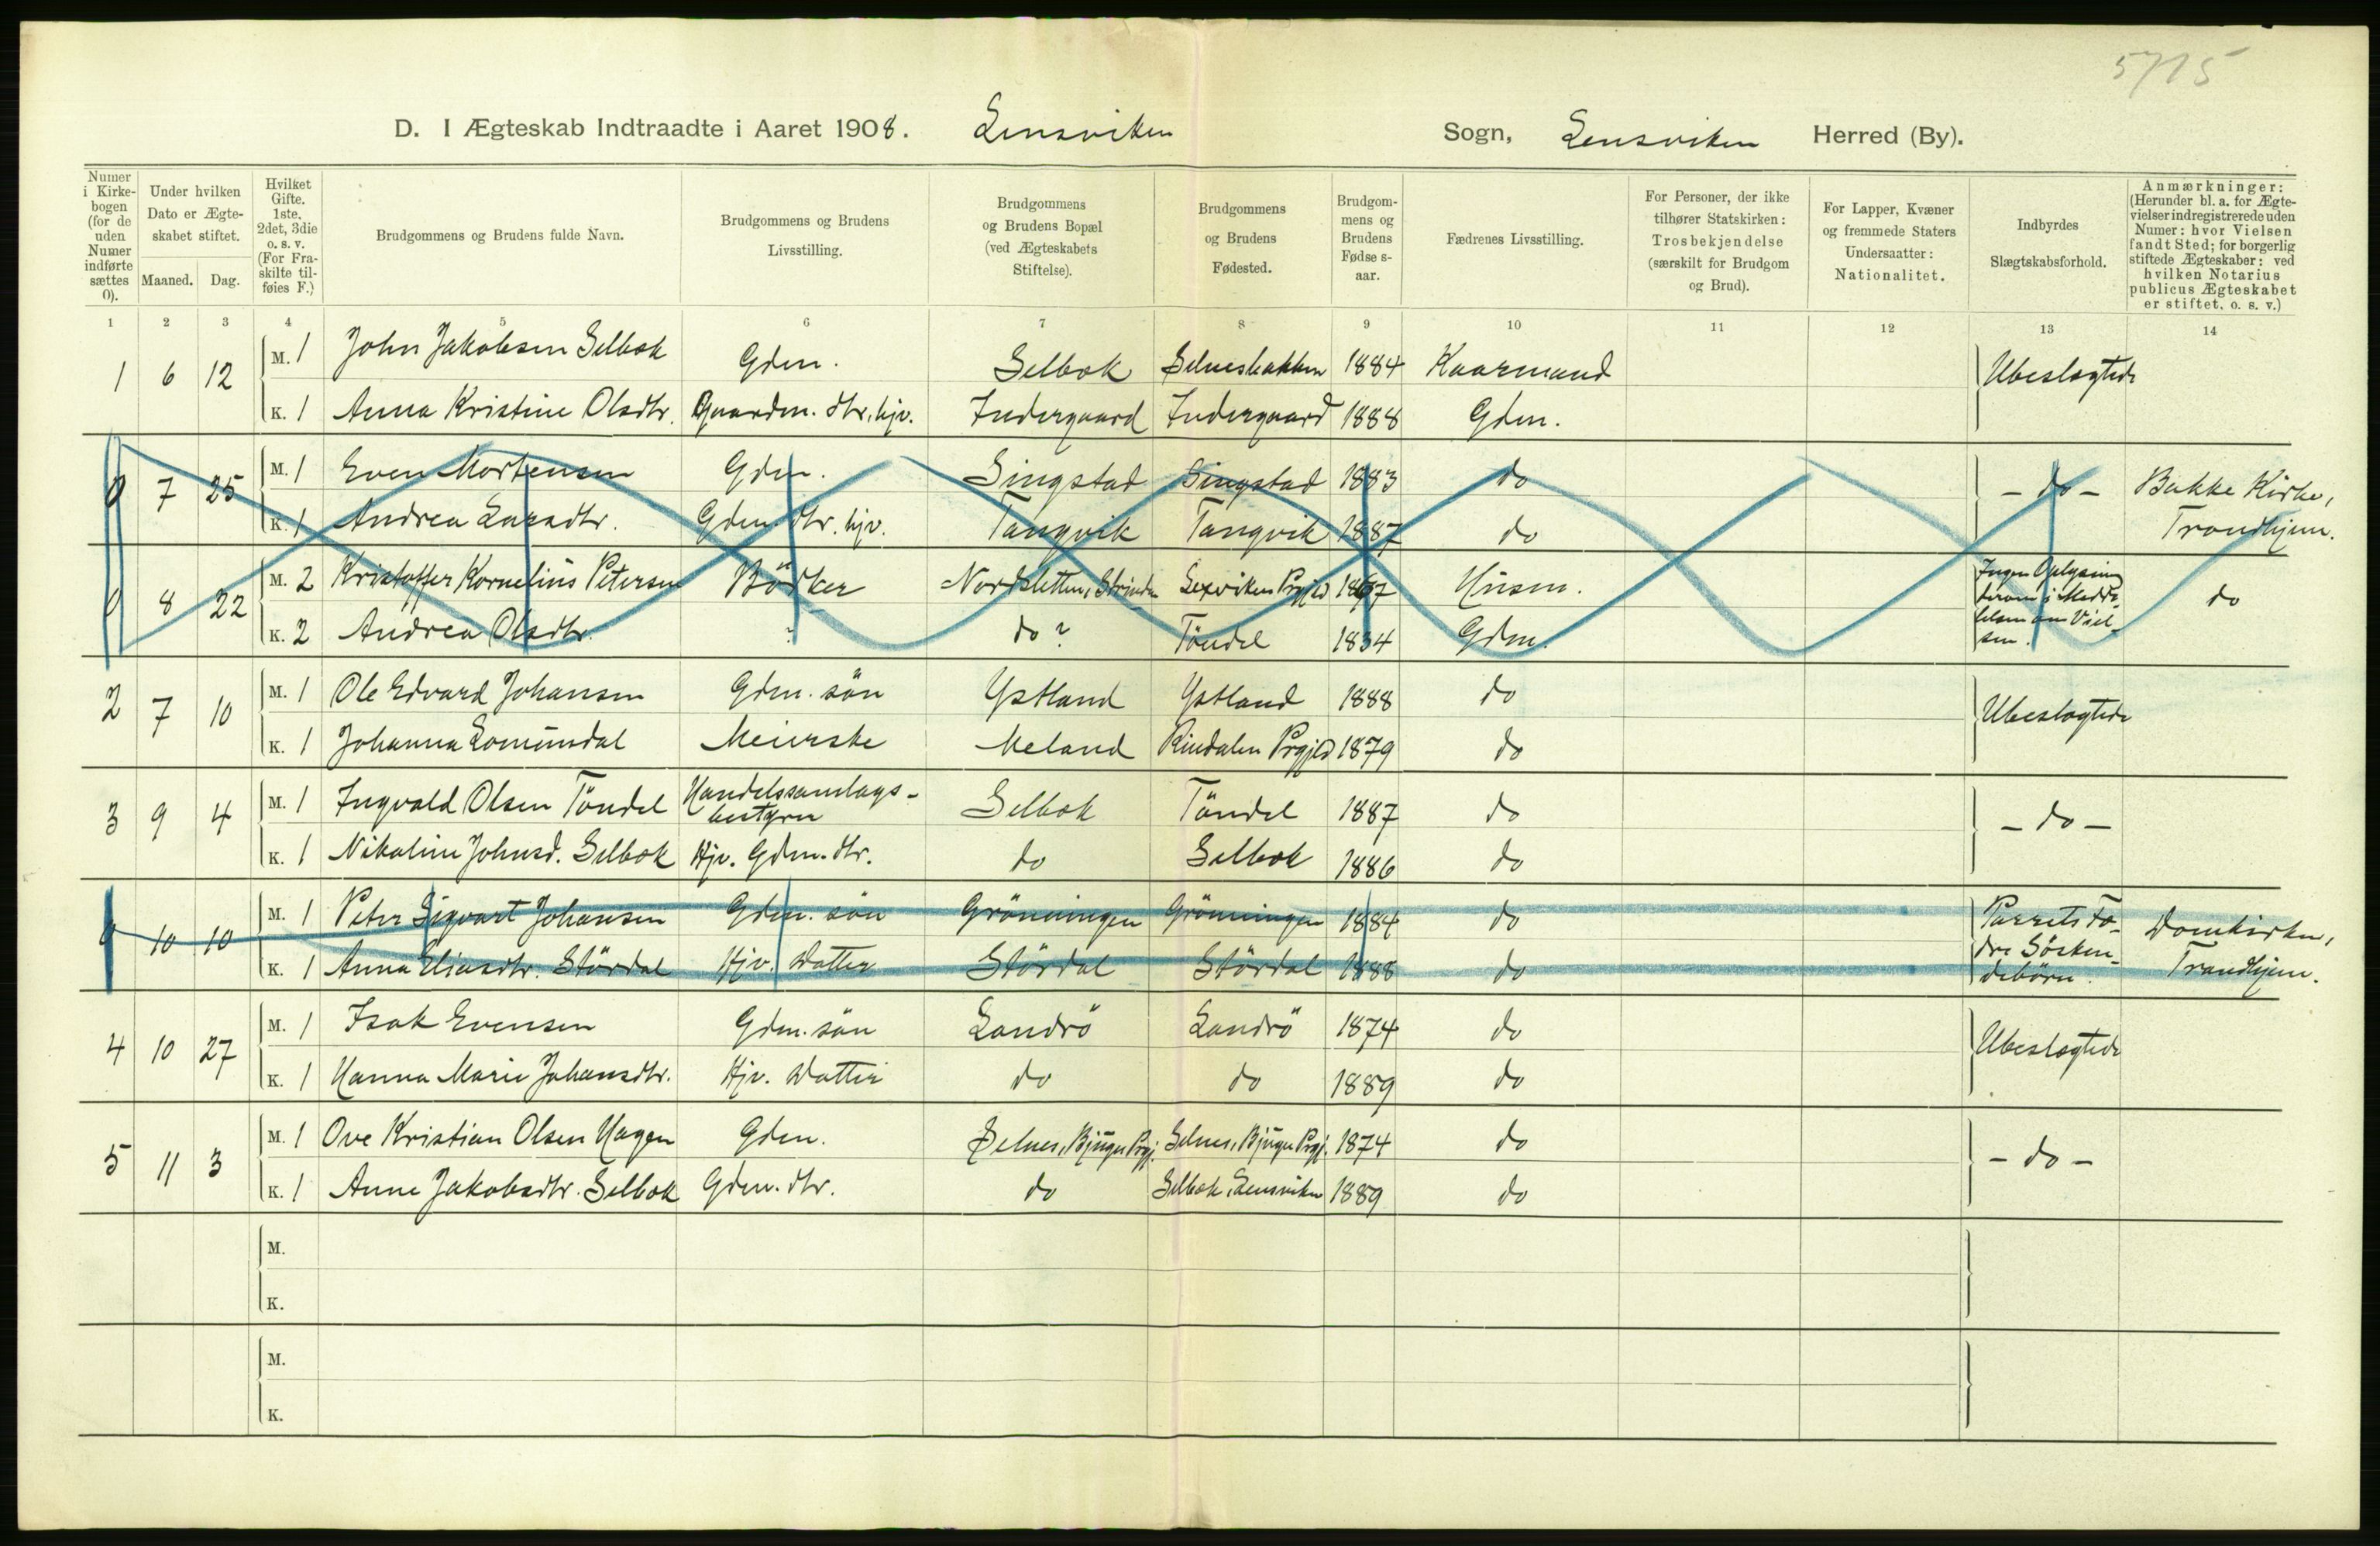 5/15
D. I Ægteskab Indtraadte i Aaret 1908. Lensviken Sogn, Lensviken Herred (By).
Numer i Kirke-bogen (for de uden Numer indførte sættes 0).
Under hvilken Dato er Ægte-skabet stiftet.
Maaned. Dag.
Hvilket Gifte. 1ste, 2det, 3die o. s. v. (For Fra-skilte til-føies F.)
Brudgommens og Brudens fulde Navn.
Brudgommens og Brudens Livsstilling.
Brudgommens og Brudens Bopæl (ved Ægteskabets Stiftelse).
Brudgommens og Brudens Fødested.
Brudgom-mens og Brudens Fødse s-aar.
Fædrenes Livsstilling.
For Personer, der ikke tilhører Statskirken: Trosbekjendelse (særskilt for Brudgom og Brud).
For Lapper, Kvæner og fremmede Staters Undersaatter: Nationalitet.
Indbyrdes Slægtskabsforhold.
Anmærkninger: (Herunder bl. a. for Ægte-vielser indregistrerede uden Numer: hvor Vielsen fandt Sted; for borgerlig stiftede Ægteskaber: ved hvilken Notarius publicus Ægteskabet er stiftet, o. s. v.)
1 2 3 4 5 6 7 8 9 10 11 12 13 14
1 6 12 M. 1 John Jakobsen Selbok Gdm. Selbok Selnesbakken 1884 Kaarmand Ubeslægtede
K. 1 Anna Kristine Olsdtr. Gaardm. dtr. hjv. Indergaard Indergaard 1888 Gdm.
0 7 25 M. 1 Even Mortensen Gdm. Singstad Singstad 1883 do - do - Bakke Kirke,
K. 1 Andrea Larsdtr. Gdm. dtr. hjv. Tangvik Tangvik 1887 do Trondhjem.
0 8 22 M. 2 Kristoffer Kornelius Petersen Bödker Nordsletten, Strinden Lexviken Prgjld 1867 Husm. Ingen Oplysning herom i Medde-lelsen om Viel-sen. do
K. 2 Andrea Olsdtr. ? do ? Töndel 1834 Gdm.
2 7 10 M. 1 Ole Edvard Johansen Gdm. sön Ystland Ystland 1888 do Ubeslægtede
K. 1 Johanna Lomundal Meierske Meland Rindalen Prgjld 1879 do
3 9 4 M. 1 Ingvald Olsen Töndel Handelssamlags-bestyrer Selbok Töndel 1887 do - do -
K. 1 Nikoline Johnsd. Selbok Hjv. Gdm. dtr. do Selbok 1886 do
0 10 10 M. 1 Peter Sigvart Johansen Gdm. sön Grönningen Grönningen 1884 do Parrets Fo-dre Sösken-debörn. Domkirken,
K. 1 Anna Eliasdtr. Stördal Hjv. Datter Stördal Stördal 1888 do Trondhjem.
4 10 27 M. 1 Isak Evensen Gdm. sön Landrö Landrö 1874 do Ubeslægtede
K. 1 Hanna Marie Johansdtr. Hjv. Datter do do 1889 do
5 11 3 M. 1 Ove Kristian Olsen Hagen Gdm. Selnes, Bjugn Prgj. Selnes, Bjugn Prgj. 1874 do - do -
K. 1 Anne Jakobsdtr. Selbok Gdm. dtr. do Selbok, Lensviken 1889 do
M.
K.
M.
K.